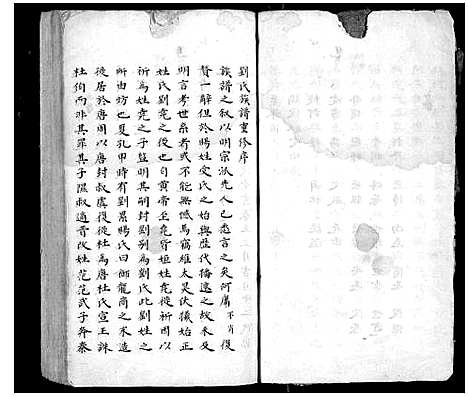 劉氏族譜重修序
族譜之叙以明宗派先人已悉言之矣何庸不肖復
贅一辭但於賜姓受氏之始與歷代播遷之故未及
明言考世系者或不能無憾焉竊維太昊伏羲始正
姓氏劉堯之後也自黄帝至堯皆姬姓堯從祈因以
祈為姓堯之子監明其封劉列為劉氏此劉姓之
所由坊也夏孔甲時有劉累賜氏曰御龍商之末造
徙居於唐周以唐封叔虞復徙杜為唐杜氏宣王誅
杜伯而非其罪其子隰叔適晋改姓范范武子奔秦